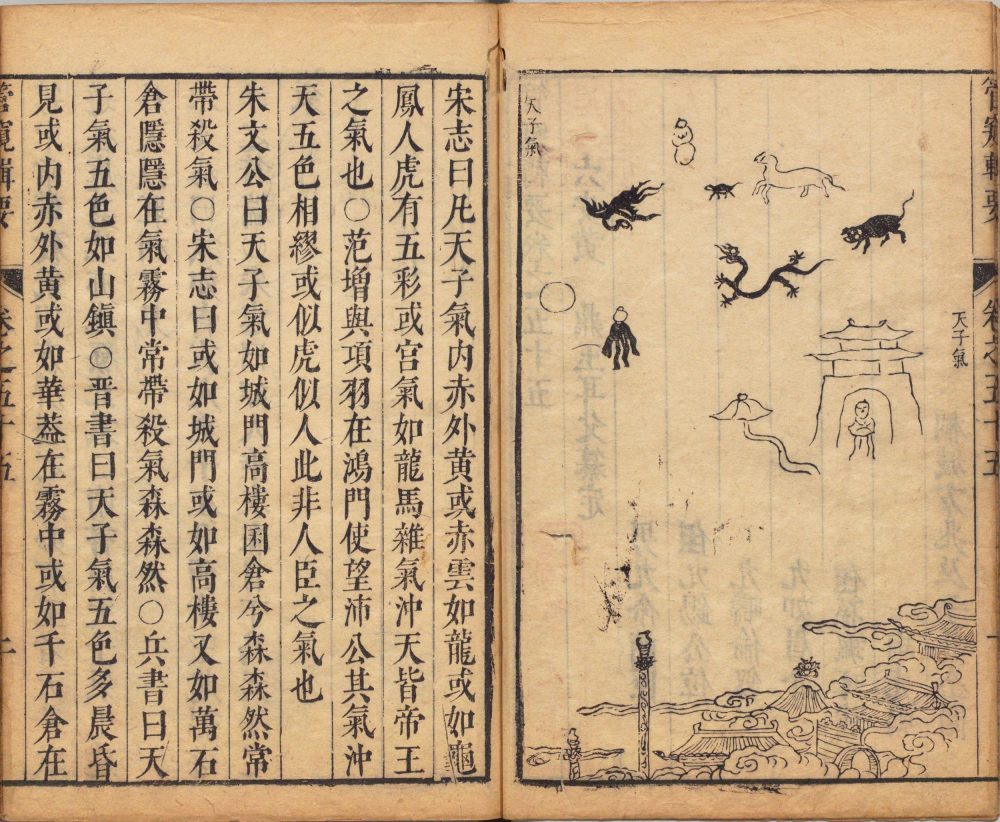 管窺輯要 卷之五十五
天子氣
天子氣
宋志曰凡天子氣内赤外黄或赤雲如龍或如龜
鳳人虎有五彩或宫氣如龍馬雜氣沖天皆帝王
之氣也○范增與項羽在鴻門使望沛公其氣沖
天五色相繆或似虎似人此非人臣之氣也
朱文公曰天子氣如城門高樓囷倉兮森森然常
帶殺氣○宋志曰或如城門或如高樓又如萬石
倉隱隱在氣霧中常帶殺氣森森然○兵書曰天
子氣五色如山鎮○晋書曰天子氣五色多晨昏
見或内赤外黄或如華葢在霧中或如千石倉在
管窺輯要 卷之五十五